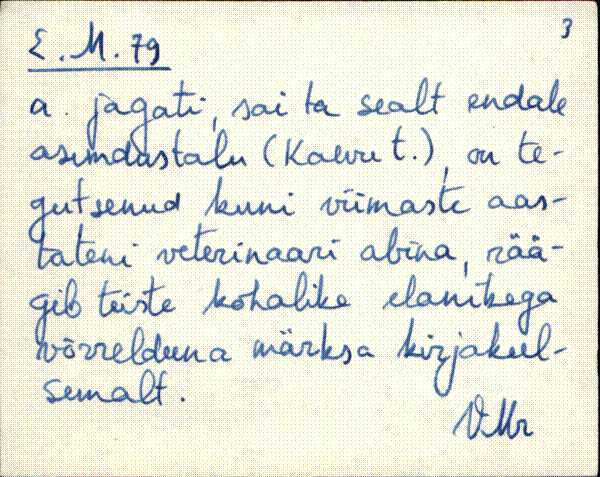 3
E. M. 79
a. jagati, sai ta sealt endale
asundustalu (Kaevu t.), on te-
gutsenud kuni viimaste aas-
tateni veterinaari abina, rää-
gib teiste kohalike elanikega
võrrelduna märksa kirjakeel-
semalt.
VMr